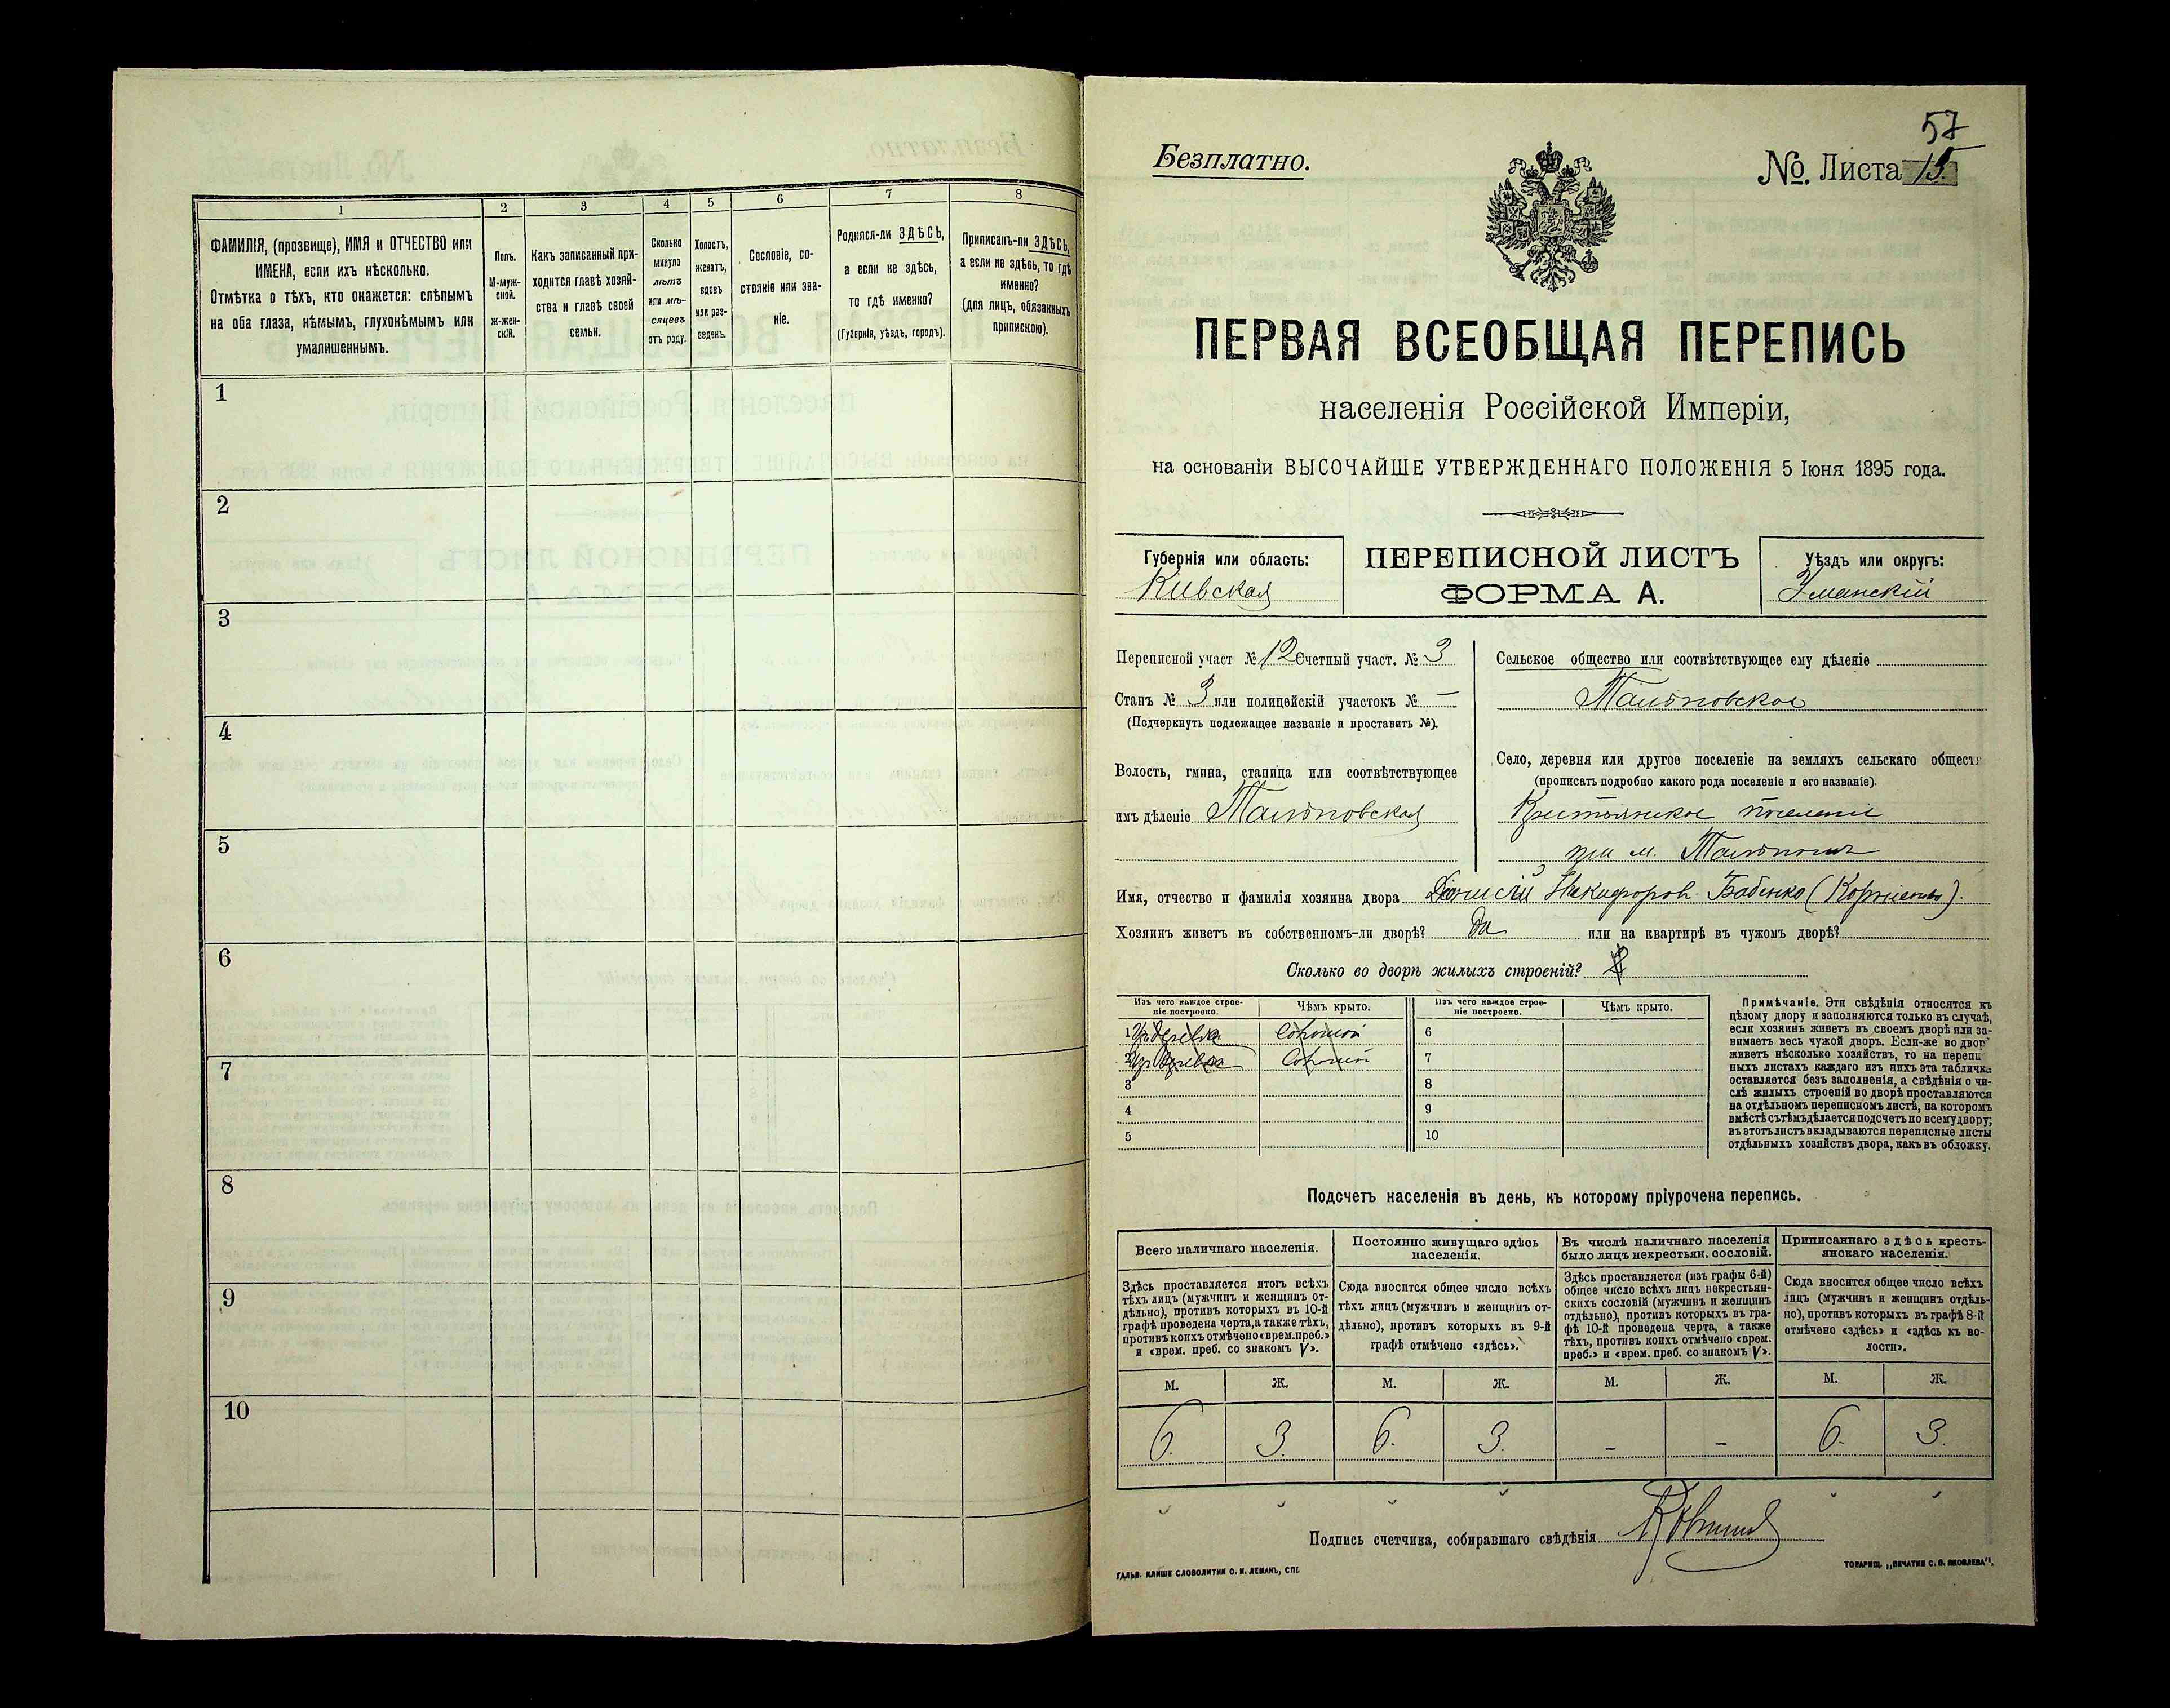 1
2
3
4
5
6
7
8
ФАМИЛІЯ, (прозвище), ИМЯ и ОТЧЕСТВО или
ИМЕНА, если ихъ нѣсколько.
Отмѣтка о тѣхъ, кто окажется: слѣпымъ
на оба глаза, нѣмымъ, глухонѣмымъ или
умалишеннымъ.
Полъ.
М-муж-
ской.
ж-жен-
скій.
Какъ записанный при-
ходится главѣ хозяй-
ства и главѣ своей
семьи.
Сколько
минуло
лѣтъ
или мѣ-
сяцевъ
отъ роду.
Холостъ,
женатъ,
вдовъ
или раз-
веденъ.
Сословіе, со-
стояніе или зва-
ніе.
Родился-ли ЗДѢСЬ,
а если не здѣсь,
то гдѣ именно?
(Губернія, уѣздъ, городъ).
Приписанъ-ли ЗДѢСЬ,
а если не здѣсь, то гдѣ
именно?
(для лицъ, обязанныхъ
припискою).
1
2
3
4
5
6
7
8
9
10
57
Безплатно.
№. Листа 15.
ПЕРВАЯ ВСЕОБЩАЯ ПЕРЕПИСЬ
населенія Россійской Имперіи,
на основаніи ВЫСОЧАЙШЕ УТВЕРЖДЕННАГО ПОЛОЖЕНІЯ 5 Іюня 1895 года.
Губернія или область:
Кіевская
ПЕРЕПИСНОЙ ЛИСТЪ
ФОРМА А.
Уѣздъ или округъ:
Уманскій
Переписной участ № 12 Счетный участ. № 3
Станъ № 3 или полицейскій участокъ № —
(Подчеркнуть подлежащее названіе и проставить №).
Волость, гмина, станица или соотвѣтствующее
имъ дѣленіе Тальновская
Сельское общество или соотвѣтствующее ему дѣленіе
Тальновское
Село, деревня или другое поселеніе на земляхъ сельскаго обществ
(прописать подробно какого рода поселеніе и его названіе).
при м. Тальномъ
Имя, отчество и фамилія хозяина двора Діонисій Никифоров Бабенко
Хозяинъ живетъ въ собственномъ-ли дворѣ? Да или на квартирѣ въ чужомъ дворѣ?
Сколько во дворѣ жилыхъ строеній?
Изъ чего каждое строе-
ніе построено.
Чѣмъ крыто.
Изъ чего каждое строе-
ніе построено.
Чѣмъ крыто.
1 Изъ дерева Соломой
2 Изъ дерева Соломой
3
4
5
6
7
8
9
10
Примѣчаніе. Эти свѣдѣнія относятся къ
цѣлому двору и заполняются только въ случаѣ,
если хозяинъ живетъ въ своемъ дворѣ или за-
нимаетъ весь чужой дворъ. Если-же во двор
живетъ нѣсколько хозяйствъ, то на перепи
ныхъ листахъ каждаго изъ нихъ эта табличка
оставляется безъ заполненія, а свѣдѣнія о чи-
слѣ жилыхъ строеній во дворѣ проставляются
на отдѣльномъ переписномъ листѣ, на которомъ
вмѣстѣ съ тѣмъ дѣлается подсчетъ по всему двору;
въ этотъ листъ вкладываются переписные листы
отдѣльныхъ хозяйствъ двора, какъ въ обложку.
Подсчетъ населенія въ день, къ которому пріурочена перепись.
Всего наличнаго населенія.
Постоянно живущаго здѣсь
населенія.
Въ числѣ наличнаго населенія
было лицъ некрестьян. сословій.
Приписаннаго здѣсь кресть-
янскаго населенія.
Здѣсь проставляется итогъ всѣхъ
тѣхъ лицъ (мужчинъ и женщинъ от-
дѣльно), противъ которыхъ въ 10-й
графѣ проведена черта, а также тѣхъ,
противъ коихъ отмѣчено «врем. преб.»
и «врем. преб. со знакомъ V».
Сюда вносится общее число всѣхъ
тѣхъ лицъ (мужчинъ и женщинъ от-
дѣльно), противъ которыхъ въ 9-й
графѣ отмѣчено «здѣсь».
Здѣсь проставляется (изъ графы 6-й)
общее число всѣхъ лицъ некрестьян-
скихъ сословій (мужчинъ и женщинъ
отдѣльно), противъ которыхъ въ гра-
фѣ 10-й проведена черта, а также
тѣхъ, противъ коихъ отмѣчено «врем.
преб.» и «врем. преб. со знакомъ V».
Сюда вносится общее число всѣхъ
лицъ (мужчинъ и женщинъ отдѣль-
но), противъ которыхъ въ графѣ 8-й
отмѣчено «здѣсь» и «здѣсь къ во-
лости».
М. Ж. М. Ж. М. Ж. М. Ж.
6. 3. 6. 3. – – 6. 3.
Подпись счетчика, собиравшаго свѣдѣнія
ГАЛЬВ. КЛИШЕ СЛОВОЛИТНИ О. И. ЛЕМАНЪ, СПБ.
ТОВАРИЩ. „ПЕЧАТНЯ С. П. ЯКОВЛЕВА".